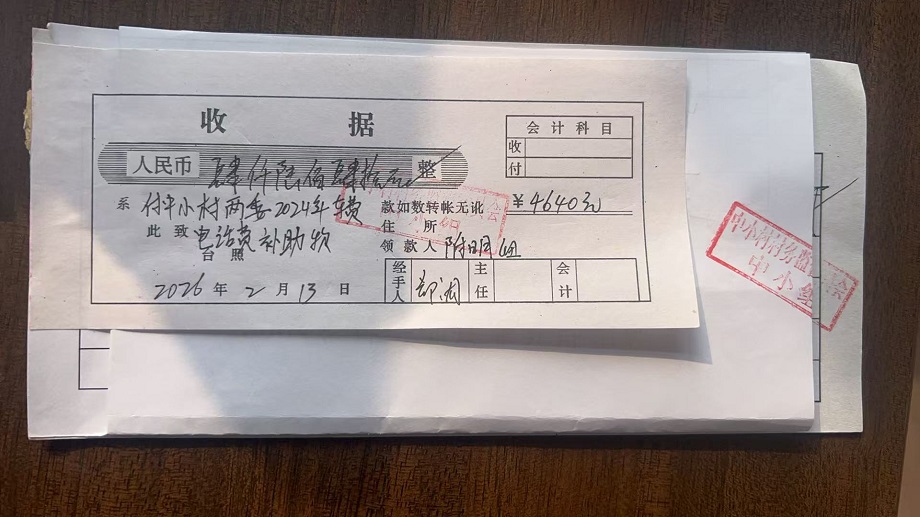 收 据
会计科目
收
付
人民币 肆仟陆佰肆拾元 整
￥4640元
系 付中小村两委2024年车费 款如数转帐无讹
此致 电话费补助款 住 所
台照 领款人
经手人 主任 会计
2026年2月13日
中小村村务监 会
中小组